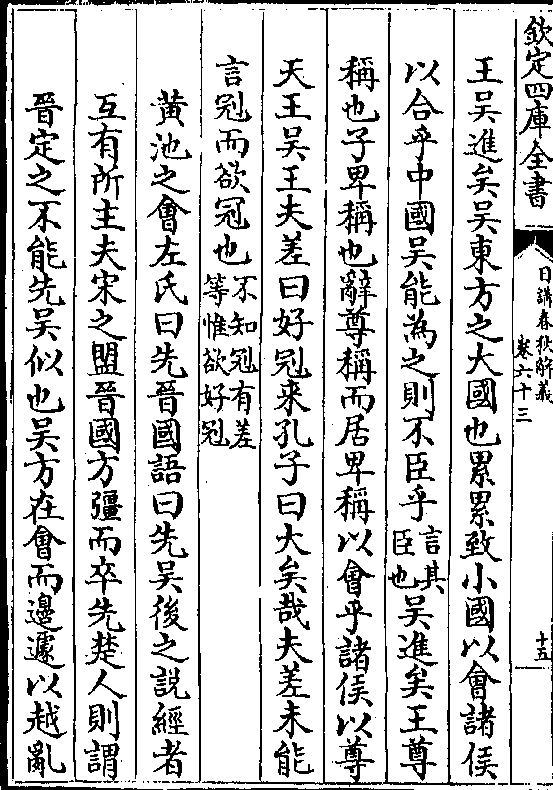 欽定四庫全書
日講春秋解義
卷六十三
十五
王吳進矣吳東方之大國也累累致小國以會諸侯
以合乎中國吳能為之則不臣乎言其臣也吳進矣王尊
稱也子卑稱也辭尊稱而居卑稱以會乎諸侯以尊
天王吳王夫差曰好冠來孔子曰大矣哉夫差未能
言冠而欲冠也不知冠有差等惟欲好冠
黄池之會左氏曰先晉國語曰先吳後之説經者
互有所主夫宋之盟晉國方彊而卒先楚人則謂
晉定之不能先吳似也吳方在會而邊遽以越亂